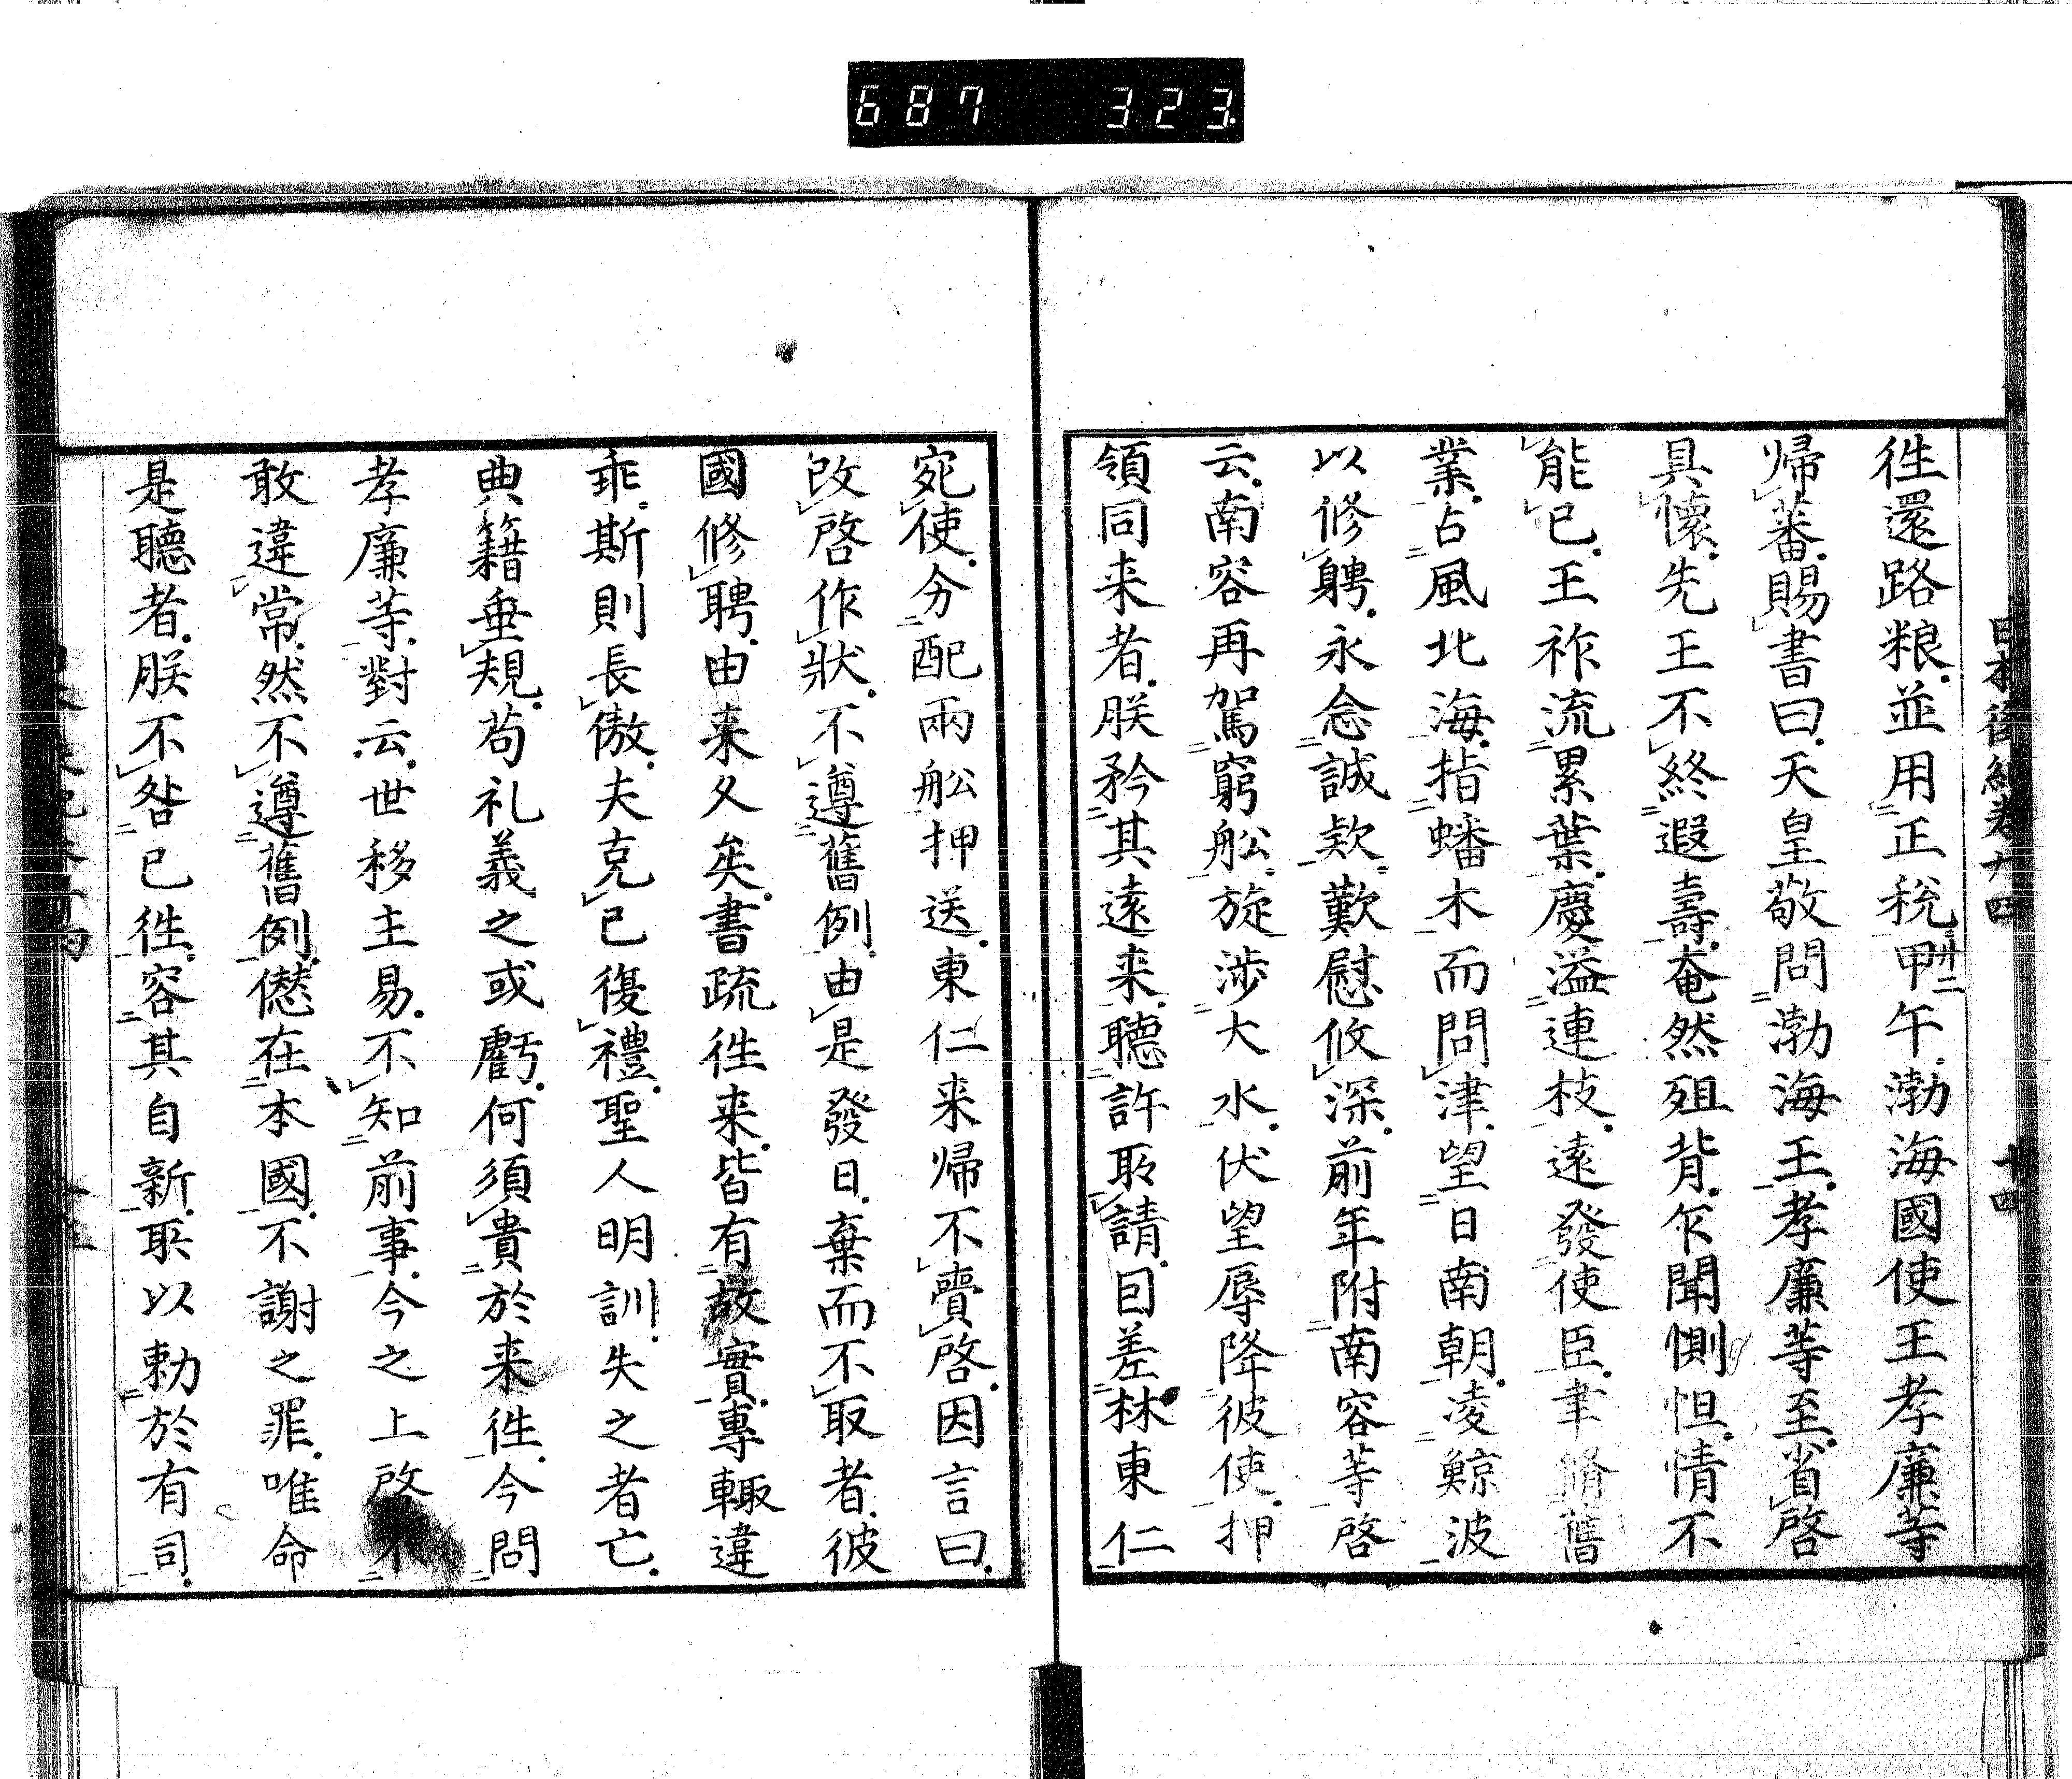 687 323
日本後紀卷廿四 十四
徃還路粮並用正税甲午渤海國使王孝廉等
歸蕃賜書曰天皇敬問渤海王孝廉等至省啓
具懷先王不終遐壽奄然殂背乍聞惻怛情不
能已王祚流累葉慶溢連枝遠發使臣聿脩舊
業占風北海指蟠木而問津望日南朝凌鯨波
以修聘永念誠欵歎慰攸深前年附南容等啓
云南容再駕窮舩旋涉大水伏望辱降彼使押
領同来者朕矜其遠来聽許取請因差林東仁
宛使分配兩舩押送東仁来歸不賷啓因言曰
改啓作狀不遵舊例由是發日棄而不取者彼
國修聘由来久矣書疏徃来皆有故實專輙違
乖斯則長傲夫克己復禮聖人明訓失之者亡
典籍垂規苟礼義之或虧何須貴於来徃今問
孝廉等對云世移主易不知前事今之上啓不
敢違常然不遵舊例僽在本國不謝之罪唯命
是聽者朕不咎已徃容其自新取以勅於有司